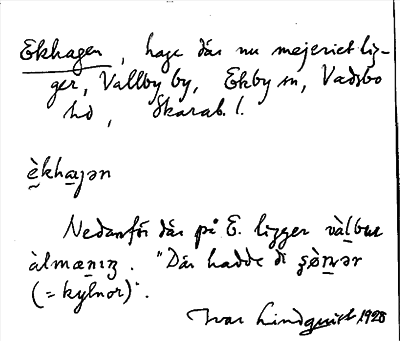 Ekhagen, hage där nu mejeriet lig-
ger, Vallby by, Ekby sn, Vadsbo
hd, Skarab. l.
èkhaɟən
Nedanför där på E. ligger vàlbuæ
àlmænıŋ. "Där hadde di ʂø̀ɳər
(= kylnor)".
Ivar Lindquist 1928